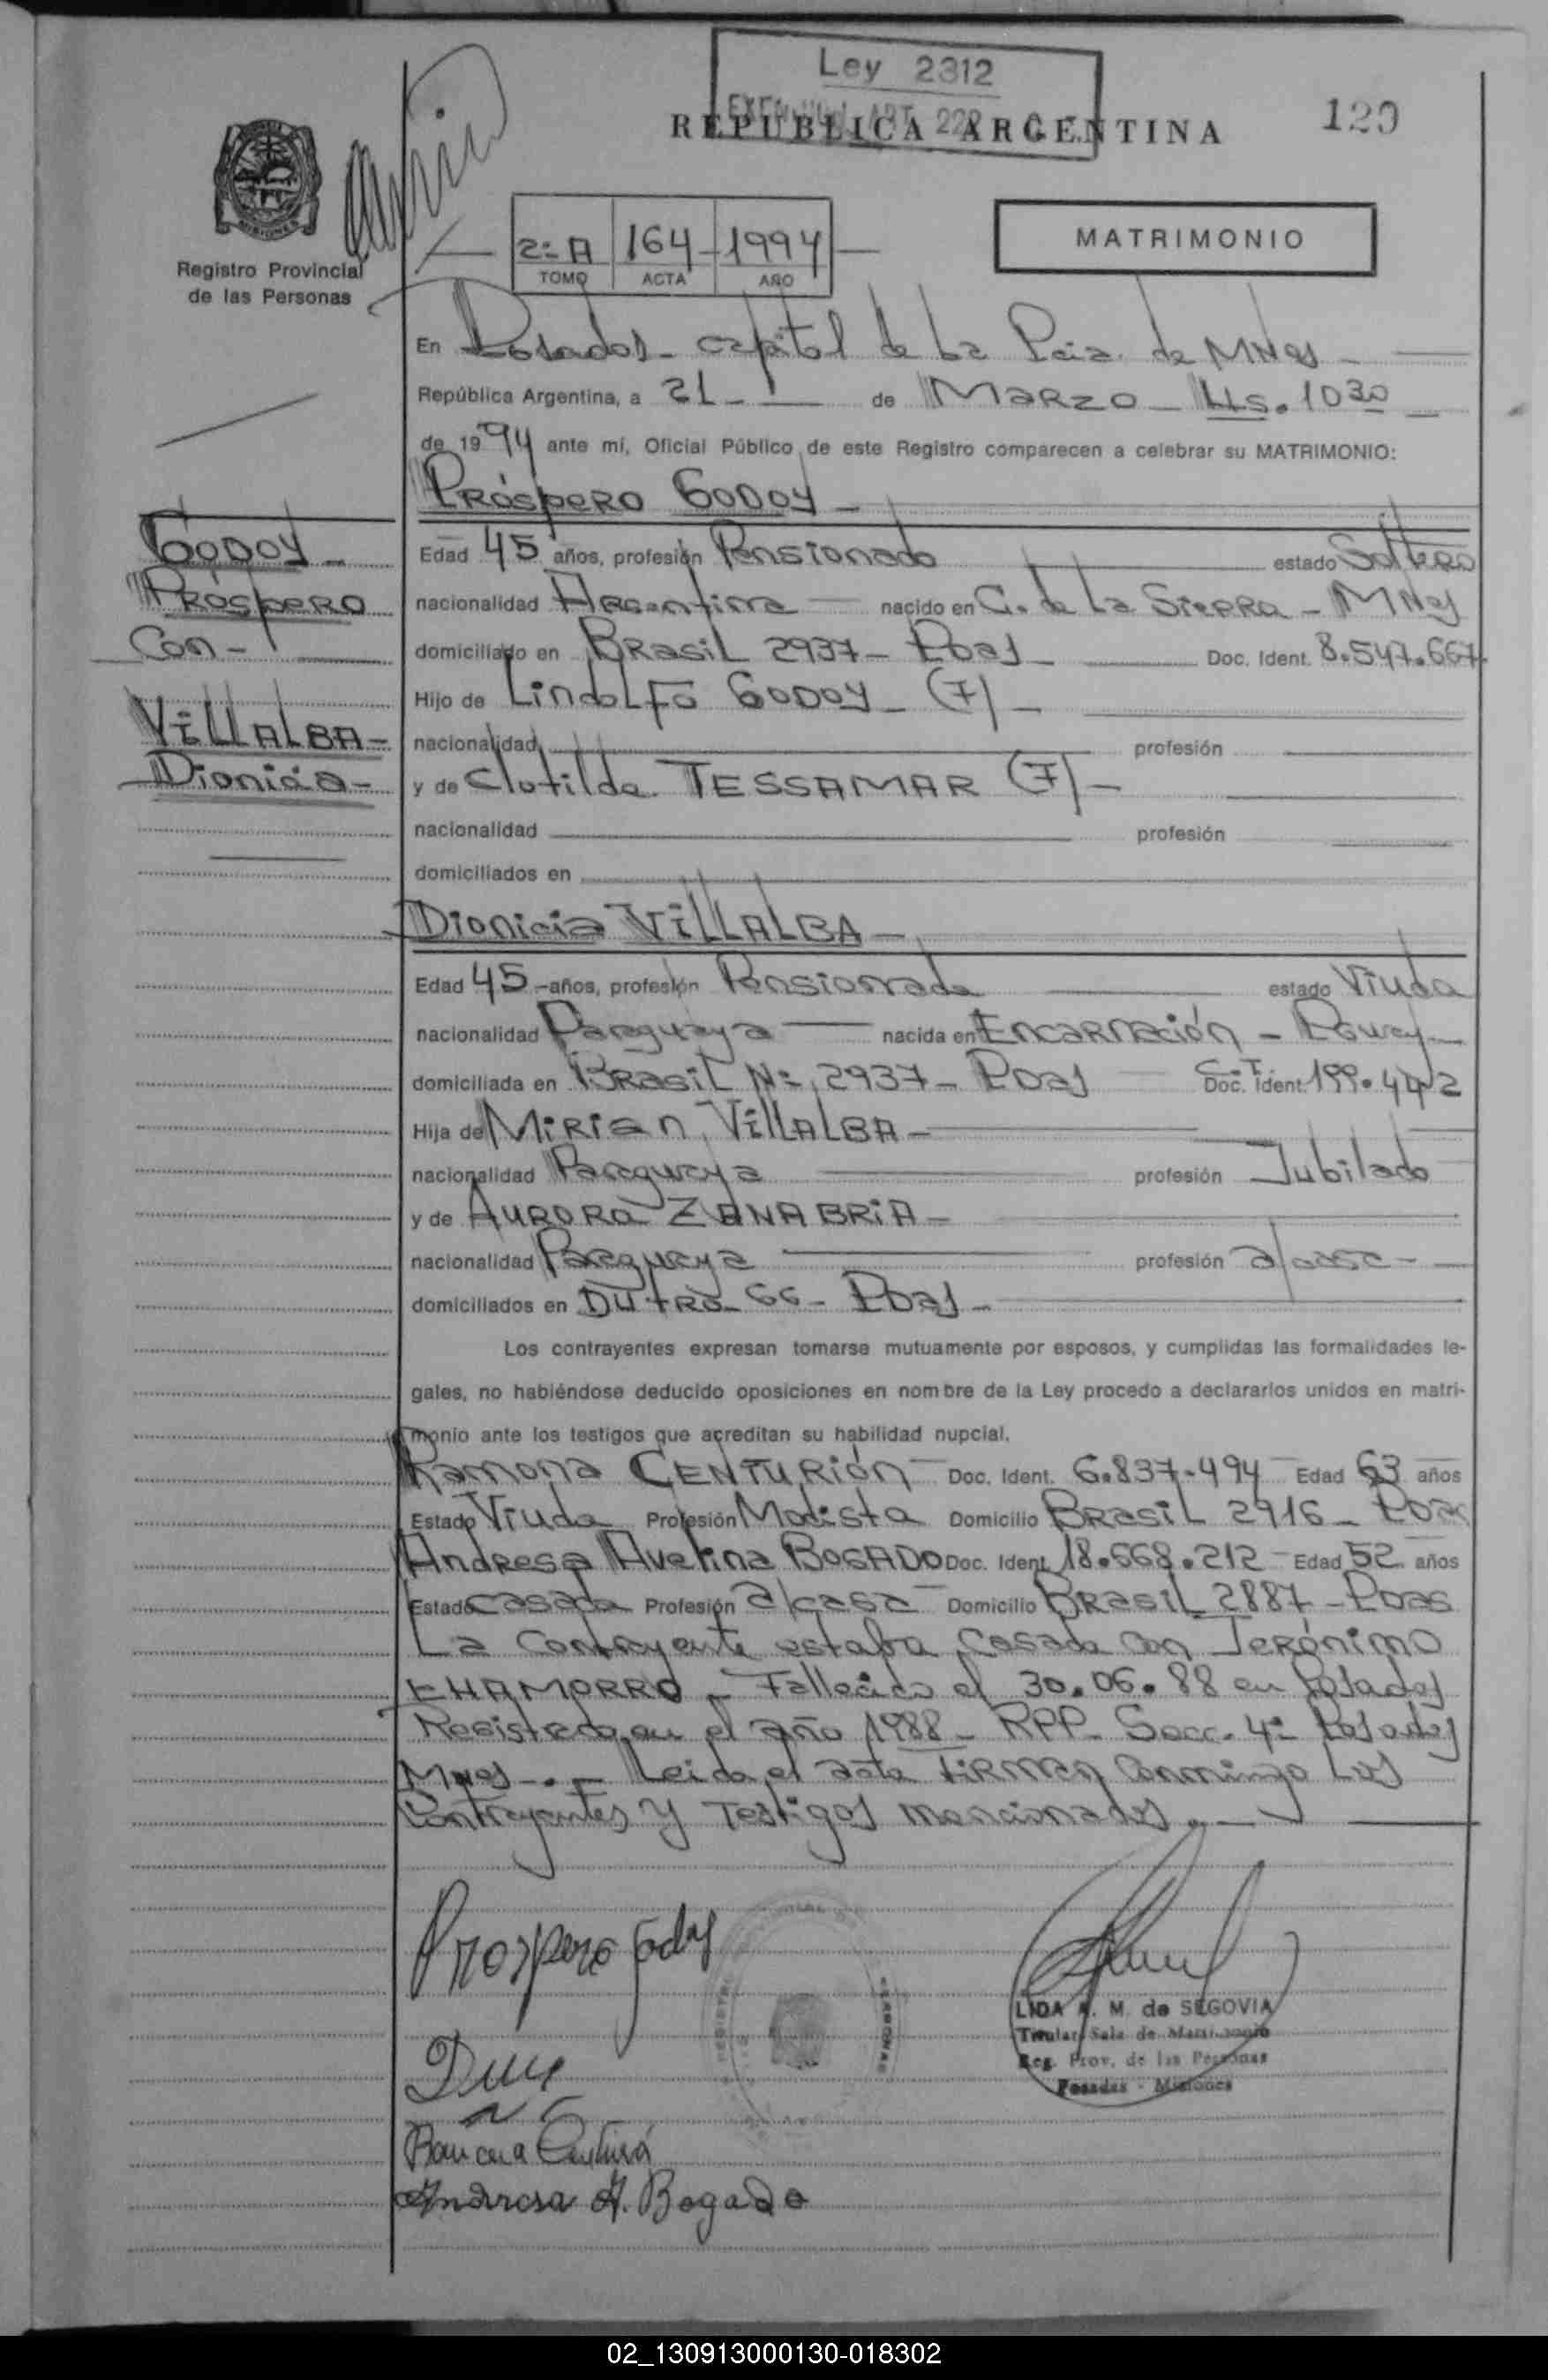 Ley 2312
REPUBLICA ARGENTINA
120
Registro Provincial
de las Personas
2º A 164 - 1994
TOMO ACTA AÑO
MATRIMONIO
En Posadas - capital de La Pcia. de MNes -
República Argentina, a 21 - de Marzo - Hs. 10 30
de 1994 ante mí, Oficial Público de este Registro comparecen a celebrar su MATRIMONIO:
Godoy -
Próspero
Con -
Villalba -
Dionicia -
Próspero Godoy -
Edad 45 años, profesión Pensionado estado Soltero
nacionalidad Argentina nacido en C. de La Sierra - MNes
domiciliado en Brasil 2937 - Pdas - Doc. Ident. 8.547.667
Hijo de Lindolfo Godoy - (F) -
nacionalidad profesión
y de Clotilde TESSAMAR (F) -
nacionalidad profesión
domiciliados en
Dionicia Villalba -
Edad 45 - años, profesión Pensionada estado Viuda
nacionalidad Paraguaya nacida en Encarnación -
domiciliada en Brasil Nº 2937 - Pdas C.I. Doc. Ident. 199.442
Hija de Mirian Villalba -
nacionalidad Paraguaya profesión Jubilado
y de Aurora Zanabria -
nacionalidad Paraguaya profesión a/casa -
domiciliados en - 66 - Pdas -
Los contrayentes expresan tomarse mutuamente por esposos, y cumplidas las formalidades le-
gales, no habiéndose deducido oposiciones en nombre de la Ley procedo a declararlos unidos en matri-
monio ante los testigos que acreditan su habilidad nupcial.
Ramona Centurión Doc. Ident. 6.837.494 Edad 63 años
Estado Viuda Profesión Modista Domicilio Brasil 2916 - Pdas
Andresa Avelina Bogado Doc. Ident. 18.668.212 Edad 52 años
Estado casada Profesión a/casa Domicilio Brasil 2887 - Pdas
La contrayente estaba casada con Jerónimo
CHAMORRO - Fallecido el 30.06.88 en Posadas
Registrado en el año 1988 - RPP - Secc. 4ª Posadas
Mnes - . - Leida el acta Firman conmingo Los
Contrayentes y Testigos mencionados. -
Prospero Godoy
Ramona Centurión
Andresa A. Bogado
LIDA A. M. de SEGOVIA
Titular Sala de Matrimonio
Reg. Prov. de las Personas
Posadas - Misiones
02_130913000130-018302